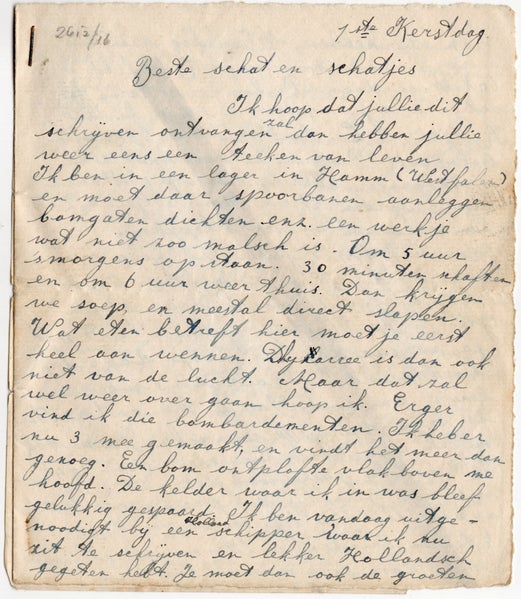 2612/16
1ste Kerstdag.
Beste schat en schatjes
Ik hoop dat jullie dit
zal
schrijven ontvangen dan hebben jullie
weer eens een teeken van leven
Ik ben in een lager in Hamm (Westfalen)
en moet daar spoorbanen aanleggen
bomgaten dichten enz. een werkje
wat niet zoo malsch is. Om 5 uur
smorgens opstaan. 30 minuten schaften
en om 6 uur weer thuis. Dan krijgen
we soep, en meestal direct slapen.
Wat eten betreft hier moet je eerst
heel aan wennen. is dan ook
niet van de lucht. Maar dat zal
wel weer over gaan hoop ik. Erger
vind ik die bombardementen. Ik heb er
nu 3 mee gemaakt, en vindt het meer dan
genoeg. Een bom ontplofte vlak boven me
hoofd. De kelder waar ik in was bleef
gelukkig gespaard. Ik ben vandaag uitge-
Holland
noodigt bij een schipper waar ik nu
zit te schrijven en lekker Hollandsch
gegeten hebt. Je moet dan ook de groeten